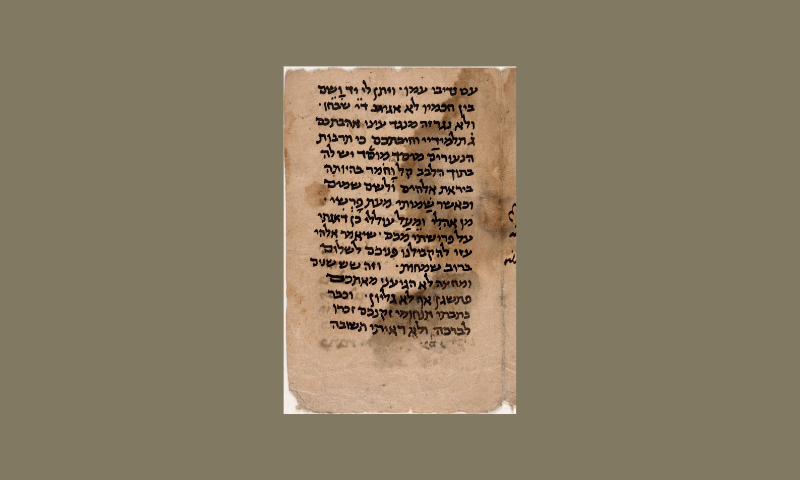 עם נדיבי עמון· ויתן לי יד ושם
בין חכמיו לא אגורה די שבחן·
ולא נגרזה מנגד עינו אהבתכם
תלמידיי וחיבתכם כי תרבות
הנעורים מוסד מוסד ויש לה
בתוך הלבב קל וחמר בהיותה
ביראת אלהים ולשם שמים
וכאשר שמותי מעת פרשי·
מן אהלי ומעל עוללי כן דאגתי
על פרישתי מכם· שיאמר אלהי
עזי להקבילנו פניכם לשלום
ברוב שמחות· וזה שש שנים
ומחצה לא הגיעני מאתכם
פתשגן אף לא גליון· וכבר
כתבתי תנחומי זקנכם זכרו
לברכה ולא ראיתי תשובה